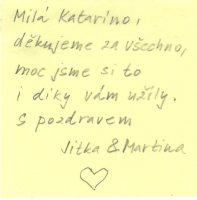 Milá Katarino,
děkujeme za všechno,
moc jsme si to
i díky vám užily.
S pozdravem
Jitka & Martina